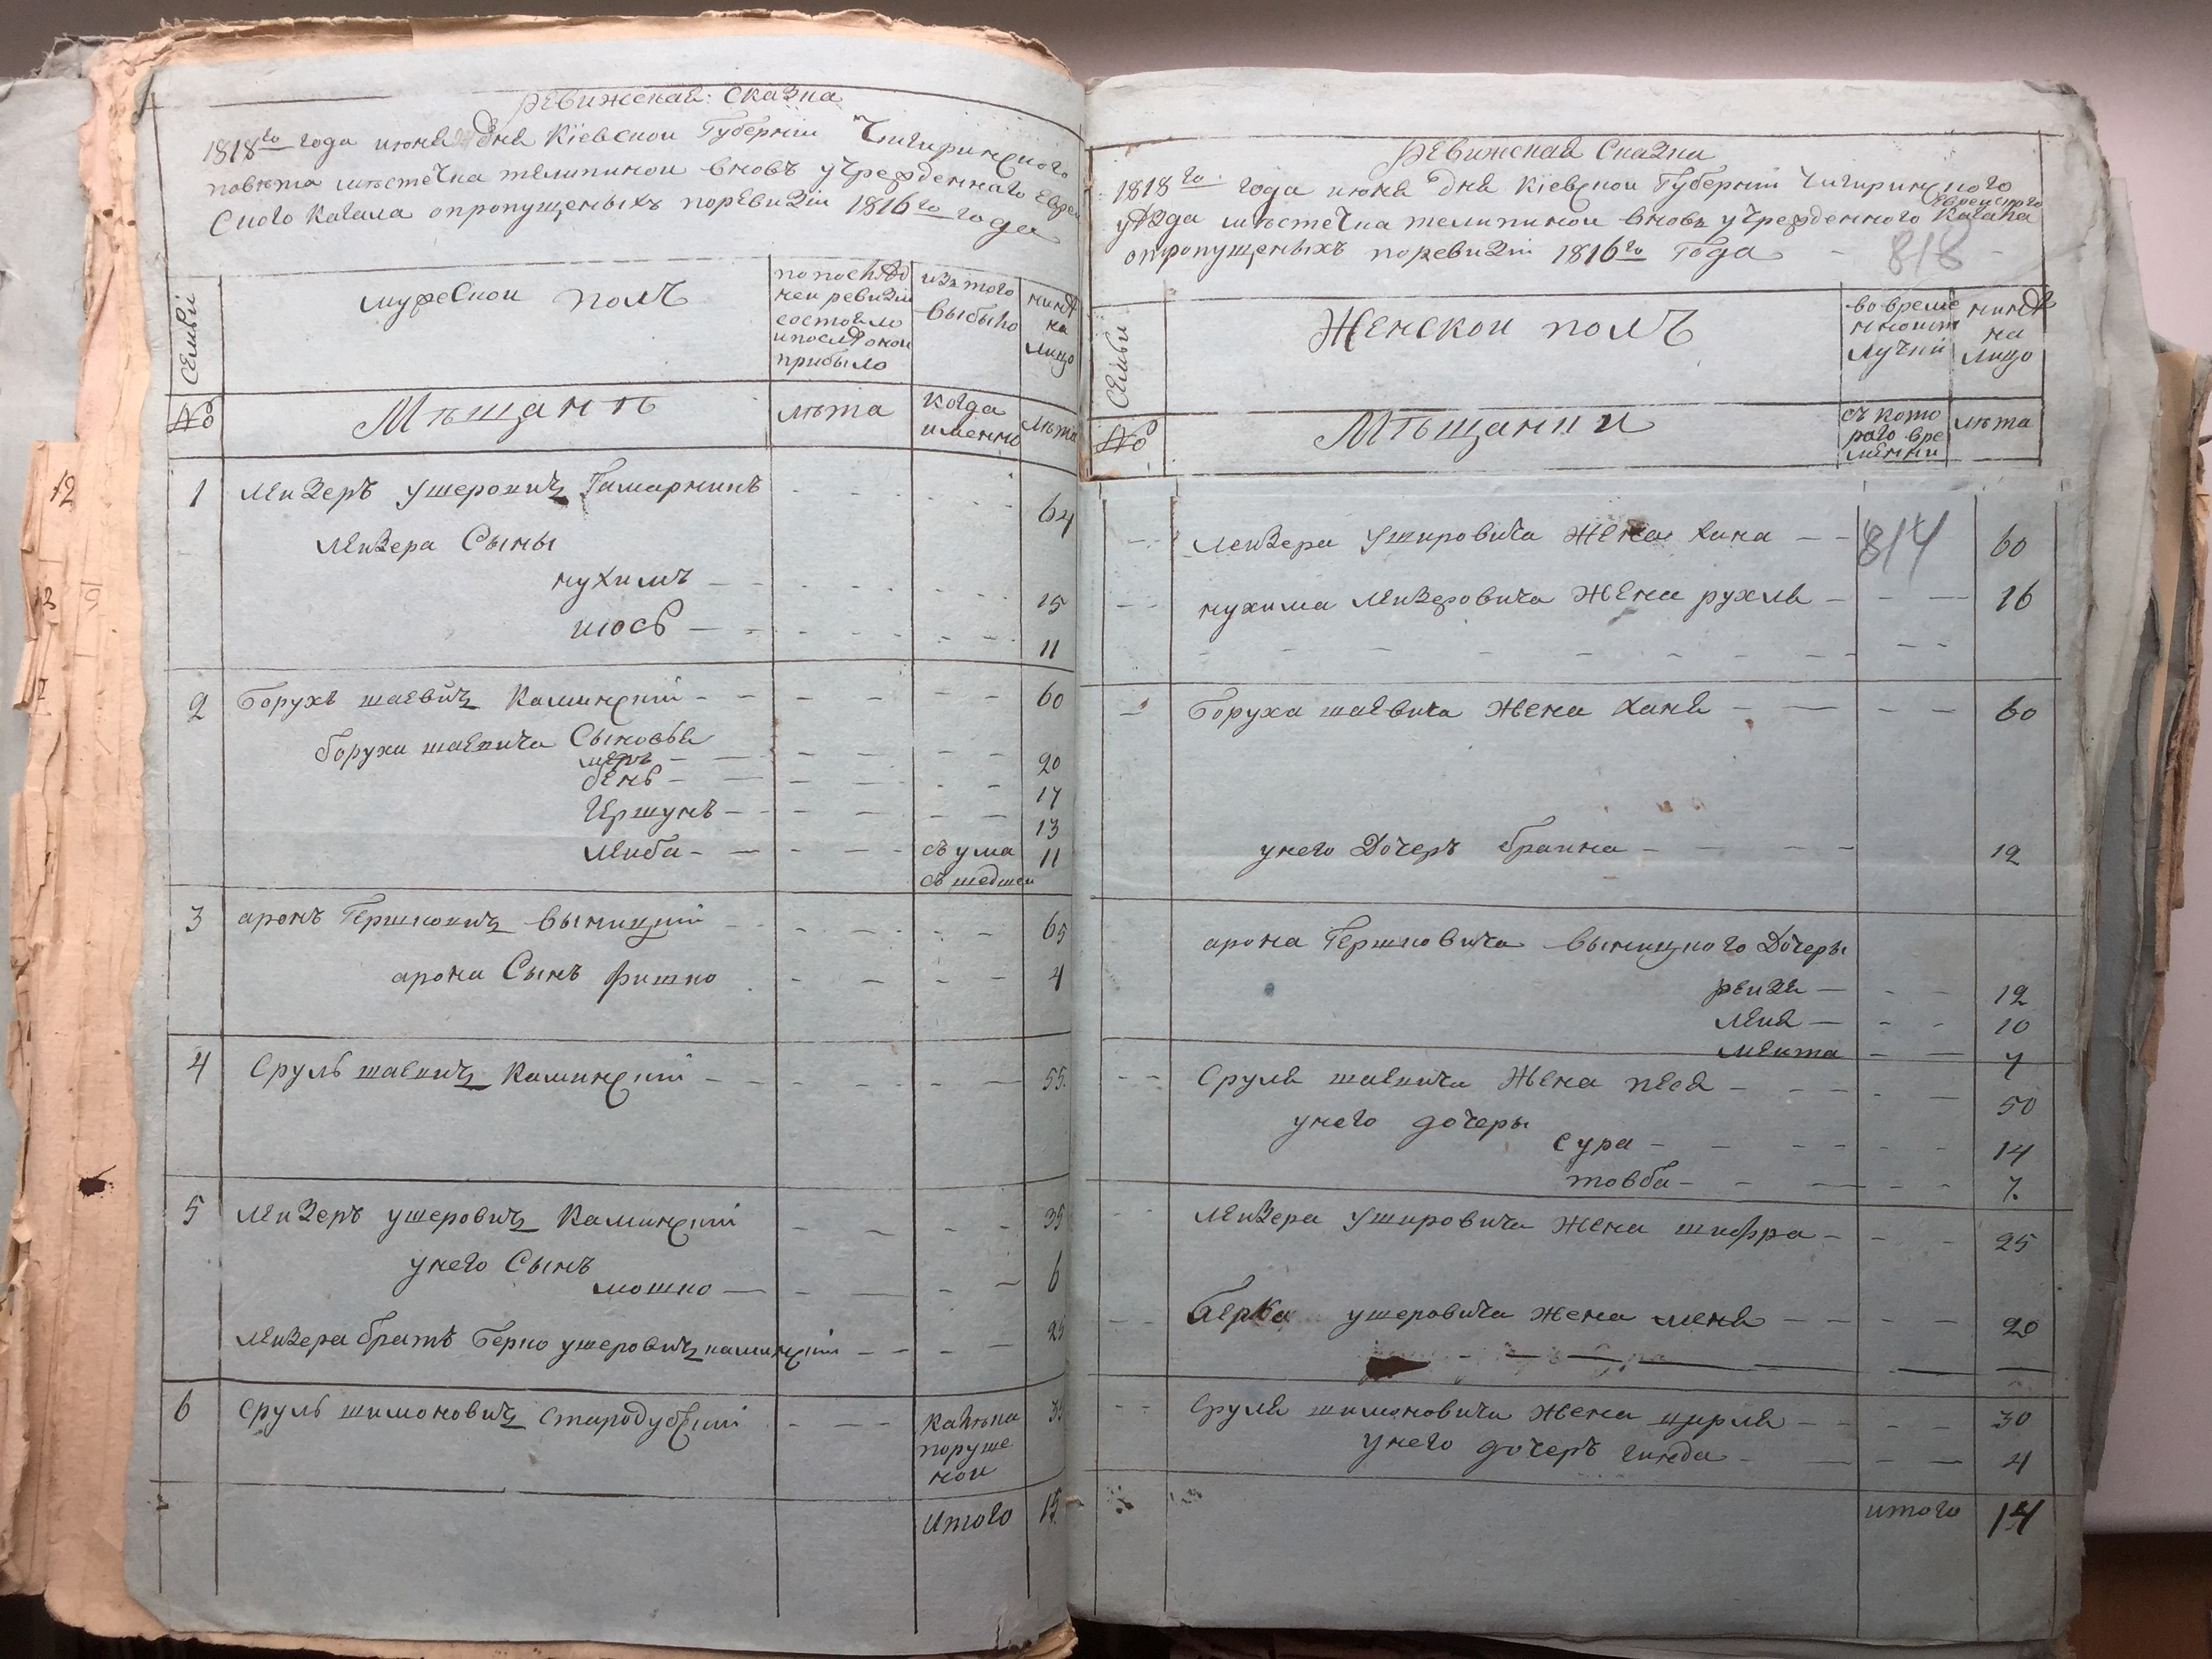 Ревижская: Сказка
1818го года июня дня Кіевской Губерніи Чигиринского
повѣта мѣстечка телипиной вновъ учрежденнаго Еврей
Ского Кагала опропущеныхъ поревизіи 1816го года
Семьи
мужеской полъ
попослѣд
ней ревизіи
состояло
ипослѣ оной
прибыло
изъ того
выбыло
нинѣ
на
лицо
№
Мѣщанъ
лѣта
когда
именно
лѣта
1 лейзеръ ушеровичъ Гамарникъ - - - - 64
лейзера Сыны
нухимъ - - - - 15
июсь - - - - 11
2 Борухъ шаевичъ Каминскій - - - - 60
боруха шаевича Сыновья
меръ - - - - 20
бень - - - - 17
Гершунъ - - - - 13
лейба - - - съ ума 11
съ шедшей
3 аронъ Гершковичъ выницкій - - - - 65
арона Сынъ фишко - - - - 4
4 Сруль шаевичъ Каминскій - - - - 55.
5 лейзеръ ушеровичъ Каминскій - - - - 35
унего Сынъ
мошко - - - - 6
лейзера братъ Берко ушеровичъ каминскій - - - - 25
6 Сруль шимоновичъ стародубскій - - - Калѣка
поруше
ной
Итого 15
Ревижская Сказка
1818го года июня дня Кіевской Губерніи Чигиринского
уѣзда мѣстечка телипиной вновъ учрежденного Еврейского Кагала
опропущеныхъ поревизіи 1816го Года - 818 -
Семьи
Женской полъ
во време
нной от
лучкѣ
нинѣ
на
лицо
№
Мѣщанки
съ кото
раго вре
мѣнни
лѣта
- - лейзера Ушировича Жена Хана - - 814 60
- - нухима лейзеровича Жена рухля - - - 16
- - - - - - - - - -
- боруха шаевича жена Ханя - - - - 60
унего Дочеръ браина - - - - 12
арона Гершковича выницкого Дочеры
рейзя - - - 12
лея - - - 10
мента - - 7
- - Сруля шаевича Жена песя - - - - 50
унего дочеры
сура - - - - 14
товба - - - - 7.
- - лейзера Ушировича жена шифра - - - 25
- - Берка ушеровича жена меня - - - - 20
- - Сруля шимоновича жена цирля - - - 30
унего дочеръ гинда - - - - 4
итого 14